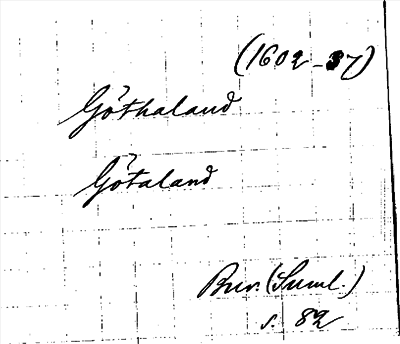 (1602-37)
Göthaland
Götaland
Bur. (Suml.)
s. 82